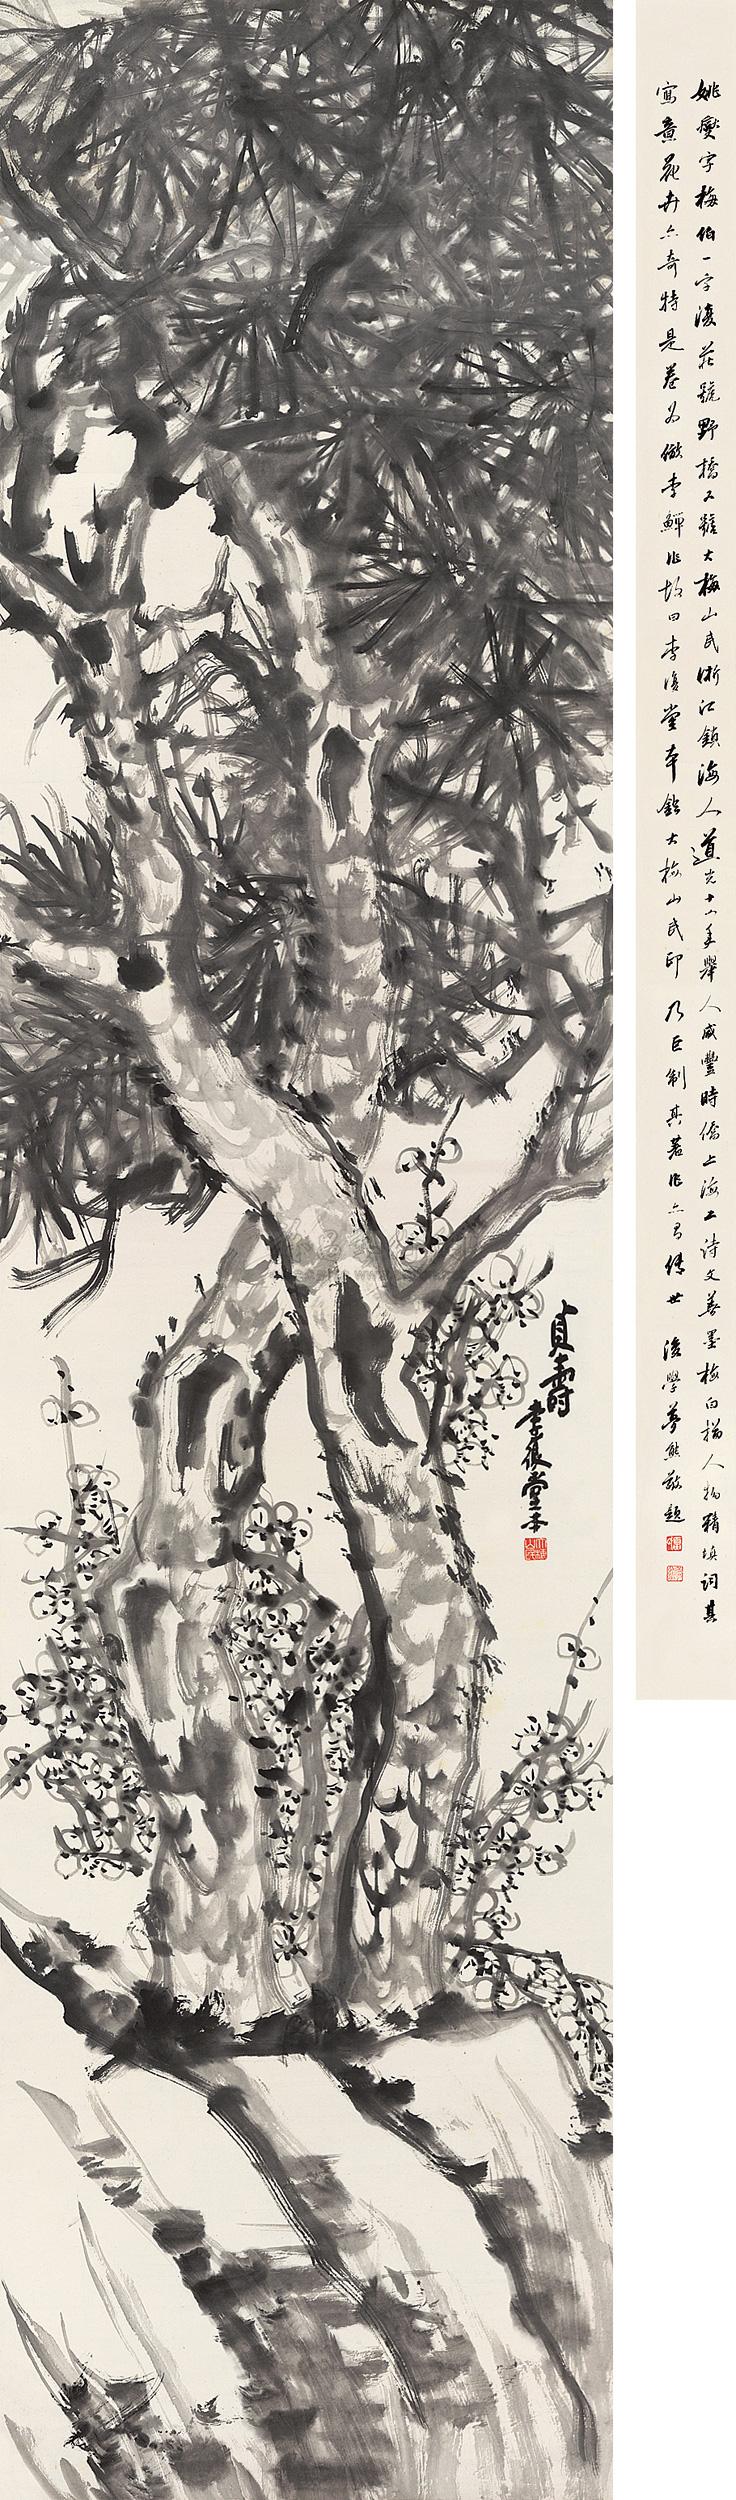 姚燮字梅伯一字復莊號野橋又號大梅山民浙江鎮海人道光十八年舉人咸豐時僑上海工詩文善墨梅白描人物精填詞其
寫意花卉亦奇特是卷為倣李鱓作故曰李復堂本鈐大梅山民印 乃巨制其著作亦有傳世 後學夢熊敬題
貞壽
李復堂本